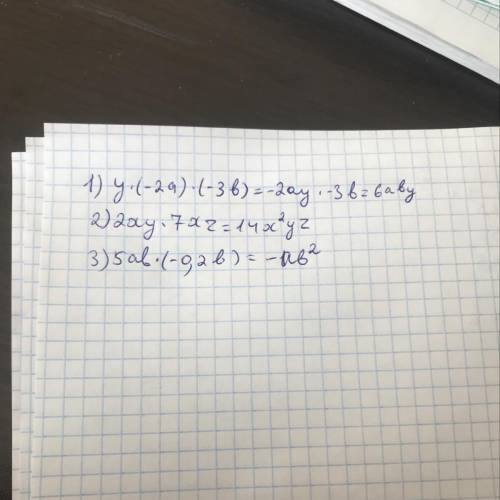 1) y·(-2a)·(-3b)=-2ay·-3b=6aby
2) 2xy·7xz=14x²yz
3) 5ab·(-0,2b)=-ab²